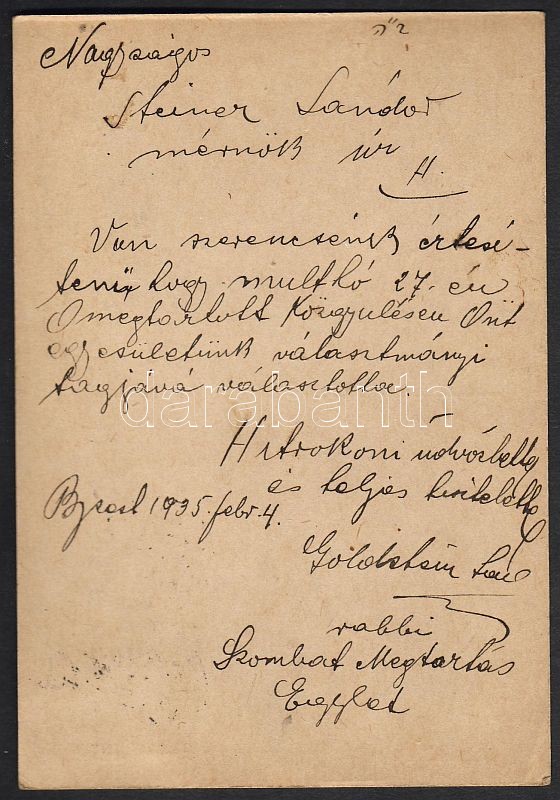 ב"ה
Nagyságos
Steiner Sándor
mérnök úr
H.
Van szerencsénk értesí-
teni, hogy multhó 27.-én
megtartott Közgyülésen Önt
egyesületünk választmányi
tagjává választotta.
Hitrokoni üdvözlettel
és teljes tisztelettel
Bpest 1935. febr. 4.
Goldstein
rabbi
Szombat Megtartás
Egylet
darabanth